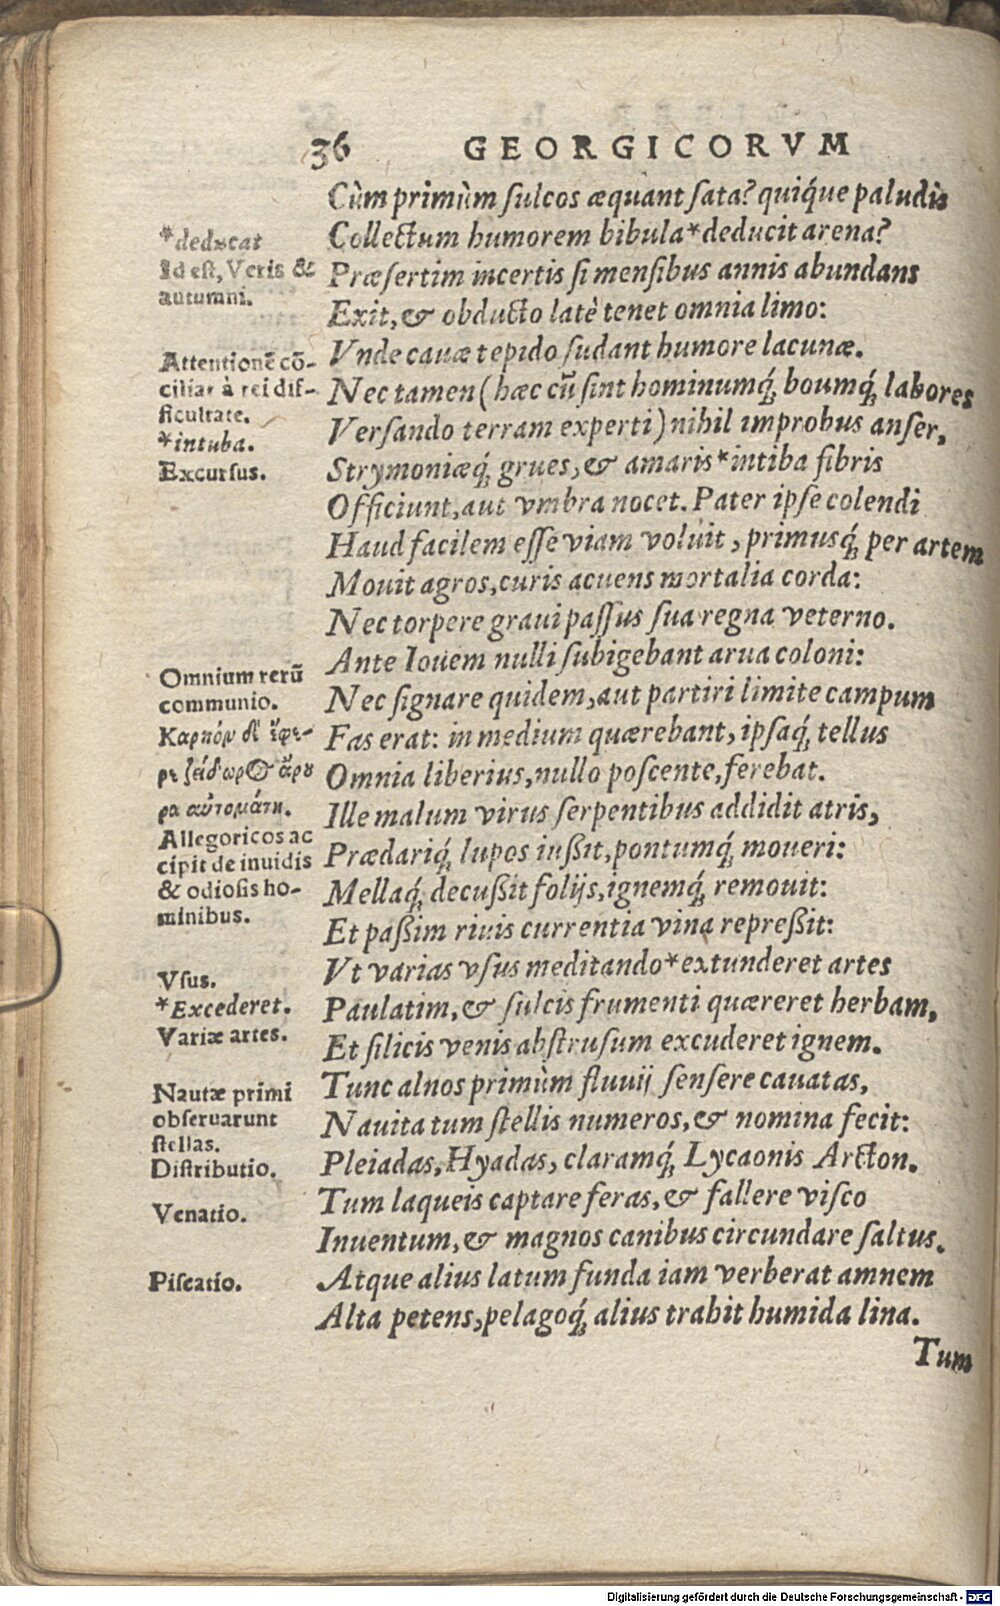 36 GEORGICORVM
Cùm primùm ſulcos æquant ſata? quiq́ue paludis
Collectum humorem bibula*deducit arena?
Præſertim incertis ſi menſibus annis abundans
Exit, & obducto latè tenet omnia limo:
Vnde cauæ tepido ſudant humore lacunæ.
Nec tamen (hæc cū ſint hominumq́; boumq́; labores
Verſando terram experti) nihil improbus anſer,
Strymoniæq́; grues, & amaris*intiba fibris
Officiunt, aut vmbra nocet. Pater ipſe colendi
Haud facilem eſſe viam voluit, primusq́; per artem
Mouit agros, curis acuens mortalia corda:
Nec torpere graui paſſus ſua regna veterno.
Ante Iouem nulli ſubigebant arua coloni:
Nec ſignare quidem, aut partiri limite campum
Fas erat: in medium quærebant, ipſaq́; tellus
Omnia liberius, nullo poſcente, ferebat.
Ille malum virus ſerpentibus addidit atris,
Prædariq́; lupos iußit, pontumq́; moueri:
Mellaq́; decußit folijs, ignemq́; remouit:
Et paßim riuis currentia vina repreßit:
Vt varias vſus meditando*extunderet artes
Paulatim, & ſulcis frumenti quæreret herbam,
Et ſilicis venis abſtruſum excuderet ignem.
Tunc alnos primùm fluuij ſenſere cauatas,
Nauita tum ſtellis numeros, & nomina fecit:
Pleiadas, Hyadas, claramq́; Lycaonis Arcton.
Tum laqueis captare feras, & fallere viſco
Inuentum, & magnos canibus circundare ſaltus.
Atque alius latum funda iam verberat amnem
Alta petens, pelagoq́; alius trahit humida lina.
Tum
*deducat
Id eſt, Veris &
autumni.
Attentionē cō-
ciliat à rei dif-
ficultate.
*intuba.
Excurſus.
Omnium rerū
communio.
Καρπὸν δ' ἔφε-
ρε ζείδωρος ἄρου
ρα αὐτομάτη.
Allegoricos ac
cipit de inuidis
& odioſis ho-
minibus.
Vſus.
*Excederet.
Variæ artes.
Nautæ primi
obſeruarunt
ſtellas.
Diſtributio.
Venatio.
Piſcatio.
Digitalisierung gefördert durch die Deutsche Forschungsgemeinschaft - DFG